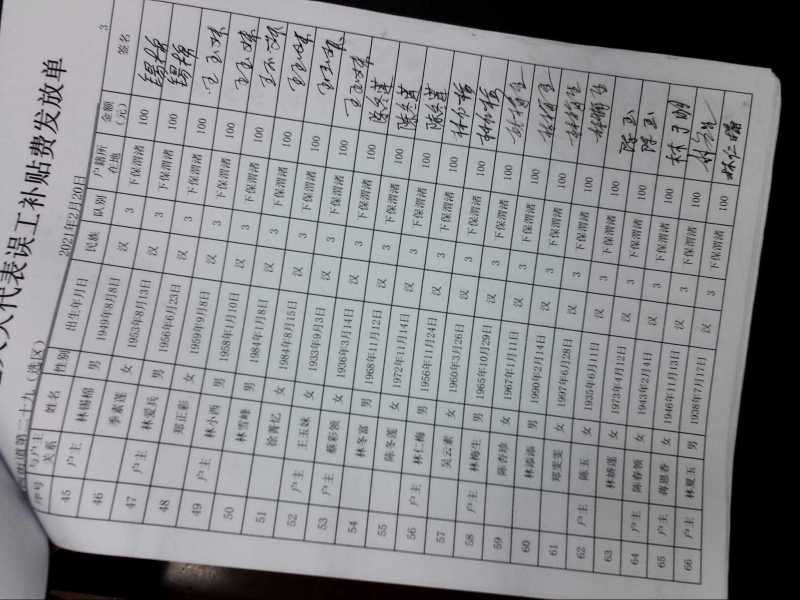 人大代表误工补贴费发放单
街道第二十九（选区） 2021年2月20日 3
序号 与户主关系 姓名 性别 出生年月日 民族 队别 户籍所在地 金额（元） 签名
45 户主 林锡棉 男 1949年8月8日 汉 3 下保渭渚 100 锡棉
46 季素莲 女 1953年8月13日 汉 3 下保渭渚 100 锡棉
47 户主 林爱兵 男 1956年6月23日 汉 3 下保渭渚 100 王玉妹
48 郑正彩 女 1959年9月8日 汉 3 下保渭渚 100 王玉妹
49 户主 林小西 男 1958年1月10日 汉 3 下保渭渚 100 王玉妹
50 林雪峰 男 1984年1月8日 汉 3 下保渭渚 100 王玉妹
51 徐菁忆 女 1984年8月15日 汉 3 下保渭渚 100 王玉妹
52 户主 王玉妹 女 1933年9月3日 汉 3 下保渭渚 100 王玉妹
53 户主 蔡彩领 女 1936年3月14日 汉 3 下保渭渚 100 陈冬莲
54 林冬富 男 1968年11月12日 汉 3 下保渭渚 100 陈冬莲
55 陈冬莲 女 1972年11月14日 汉 3 下保渭渚 100 陈冬莲
56 户主 林仁梅 男 1956年11月24日 汉 3 下保渭渚 100
57 吴云素 女 1960年3月26日 汉 3 下保渭渚 100
58 户主 林梅生 男 1965年10月29日 汉 3 下保渭渚 100 林梅生
59 陈杏珍 女 1967年1月11日 汉 3 下保渭渚 100 林梅生
60 林添添 男 1990年2月14日 汉 3 下保渭渚 100 林梅生
61 郑雯雯 女 1997年6月28日 汉 3 下保渭渚 100 林梅生
62 户主 陈玉 女 1935年6月11日 汉 3 下保渭渚 100 陈玉
63 林娇莲 女 1973年4月12日 汉 3 下保渭渚 100 陈玉
64 户主 陈春领 女 1943年2月4日 汉 3 下保渭渚 100
65 户主 蒋恩香 女 1946年11月13日 汉 3 下保渭渚 100
66 户主 林夏玉 男 1938年7月17日 汉 3 下保渭渚 100